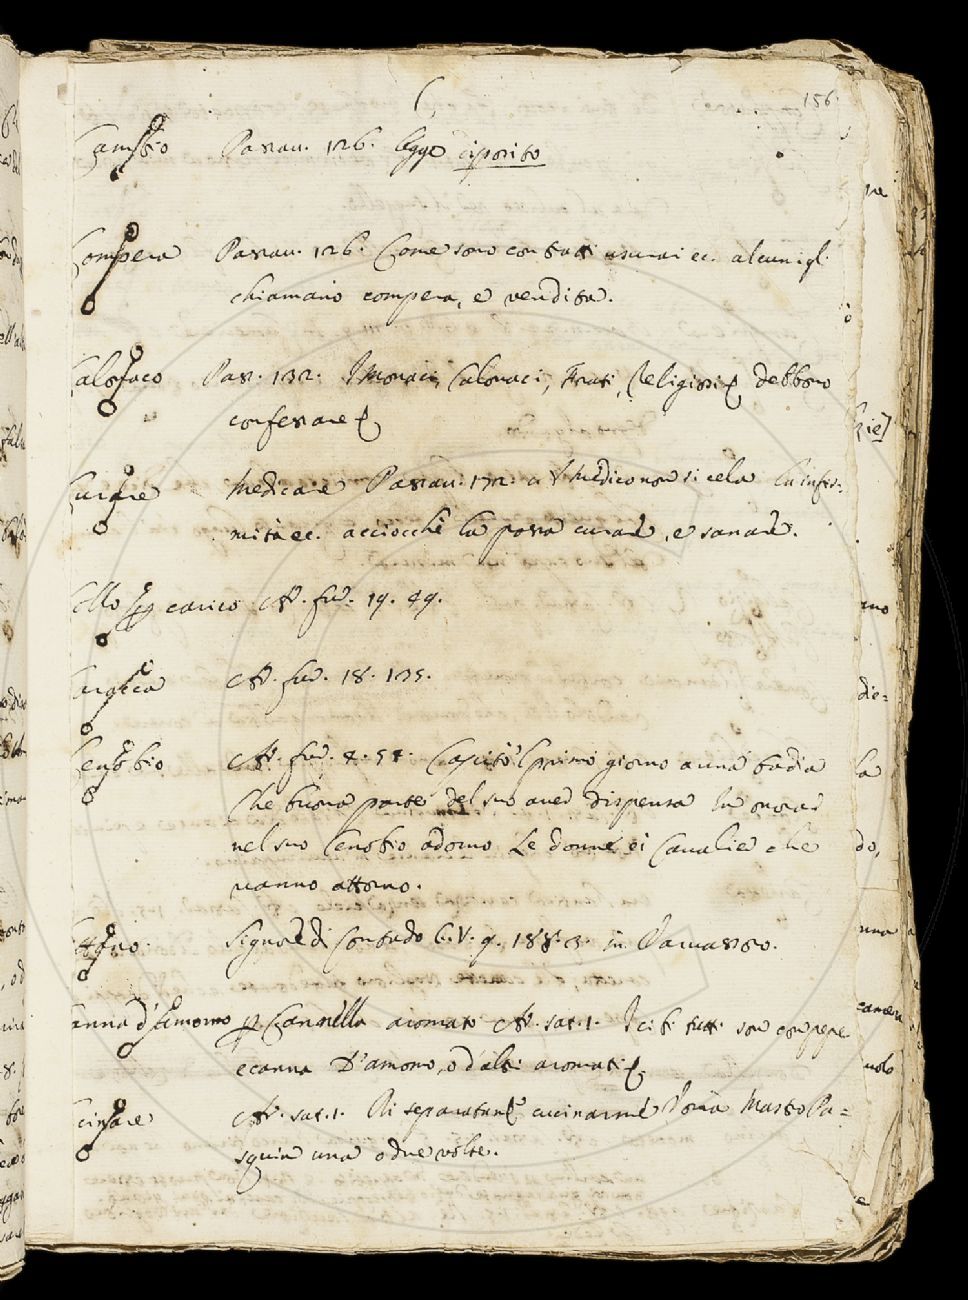 C
156.
Cambio Passav. 126. legge diposito
Compera Passav. 126. Come sono contratti usurai ec. alcuni gl.
chiamano compera, e vendita.
Calonaco Pas. 132. I Monaci, Calonaci, Frati, Religiosi debbono
confessare
Curare Medicare Passav. 172. Al Medico non si cela la infer=
mità ec. acciocchè la possa curare, e sanare.
Collo carico Ar. fur. 19. 49.
Ar. fur. 18. 135.
Cenobio Ar. fur. 4. 54. Capitò il primo giorno a una badia
Che buona parte del suo aver dispensa In onorar
nel suo Cenobio adorno Le donne, ei Cavalier che
vanno attorno.
Signore di Contado G. V. 9. 188. 3. in Damasso.
Canna d'amomo Cannella aromato Ar. sat. 1. I cibi tutti son con pepe
e canna D'amomo, o d'altri aromati
Ar. sat. 1. Di separatam cucinarme Mastro Pa=
squin una o due volte.